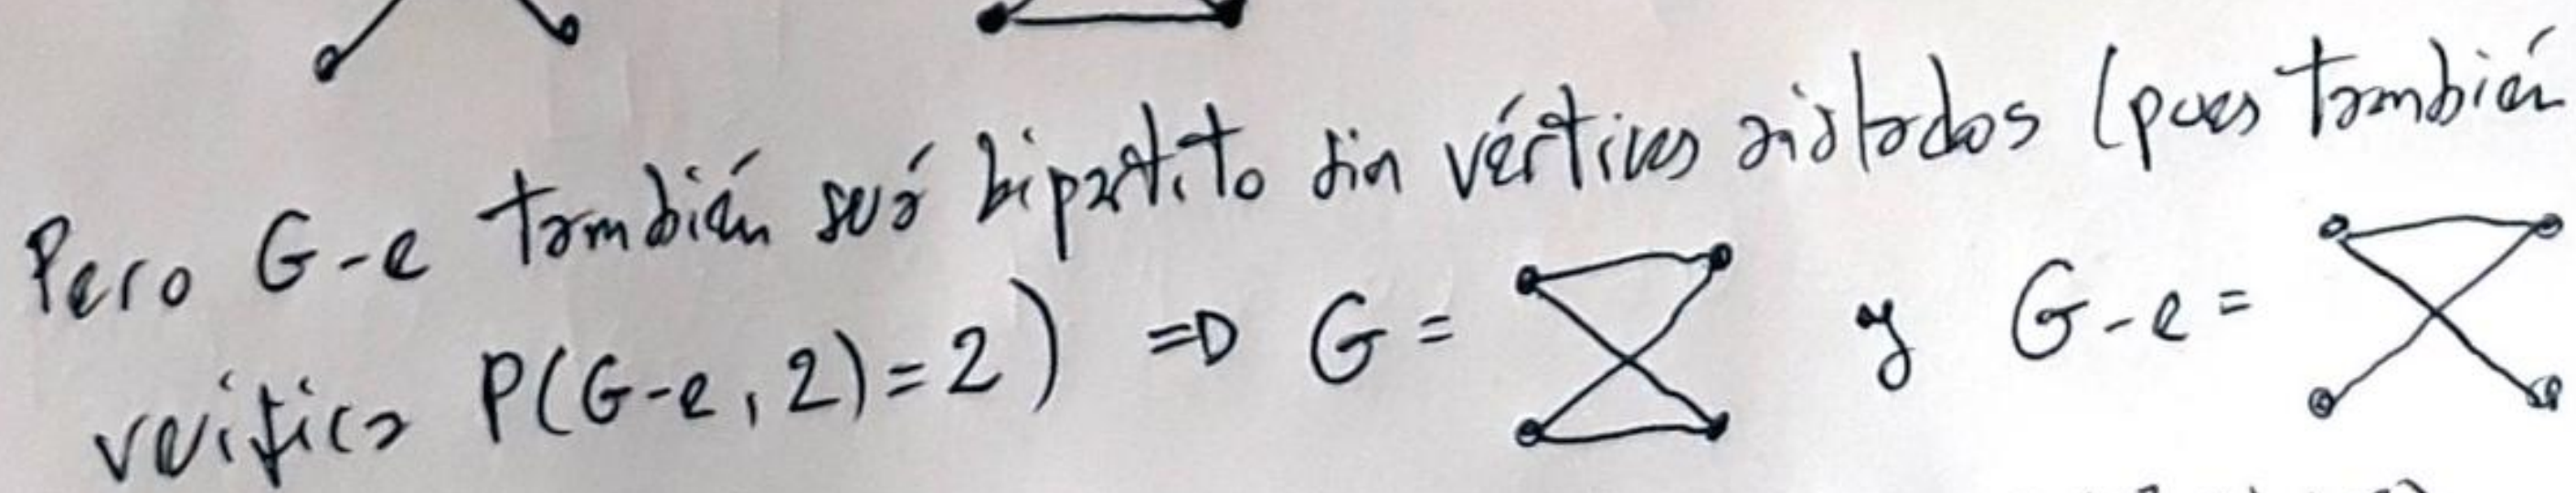 Pero G-e también será bipartito sin vértices aislados (pues también
verifica P(G-e, 2)=2) => G = y G-e =